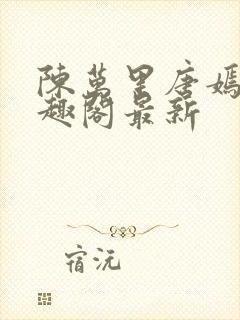 陳萬里唐嫣
趣閣最新
宿沅